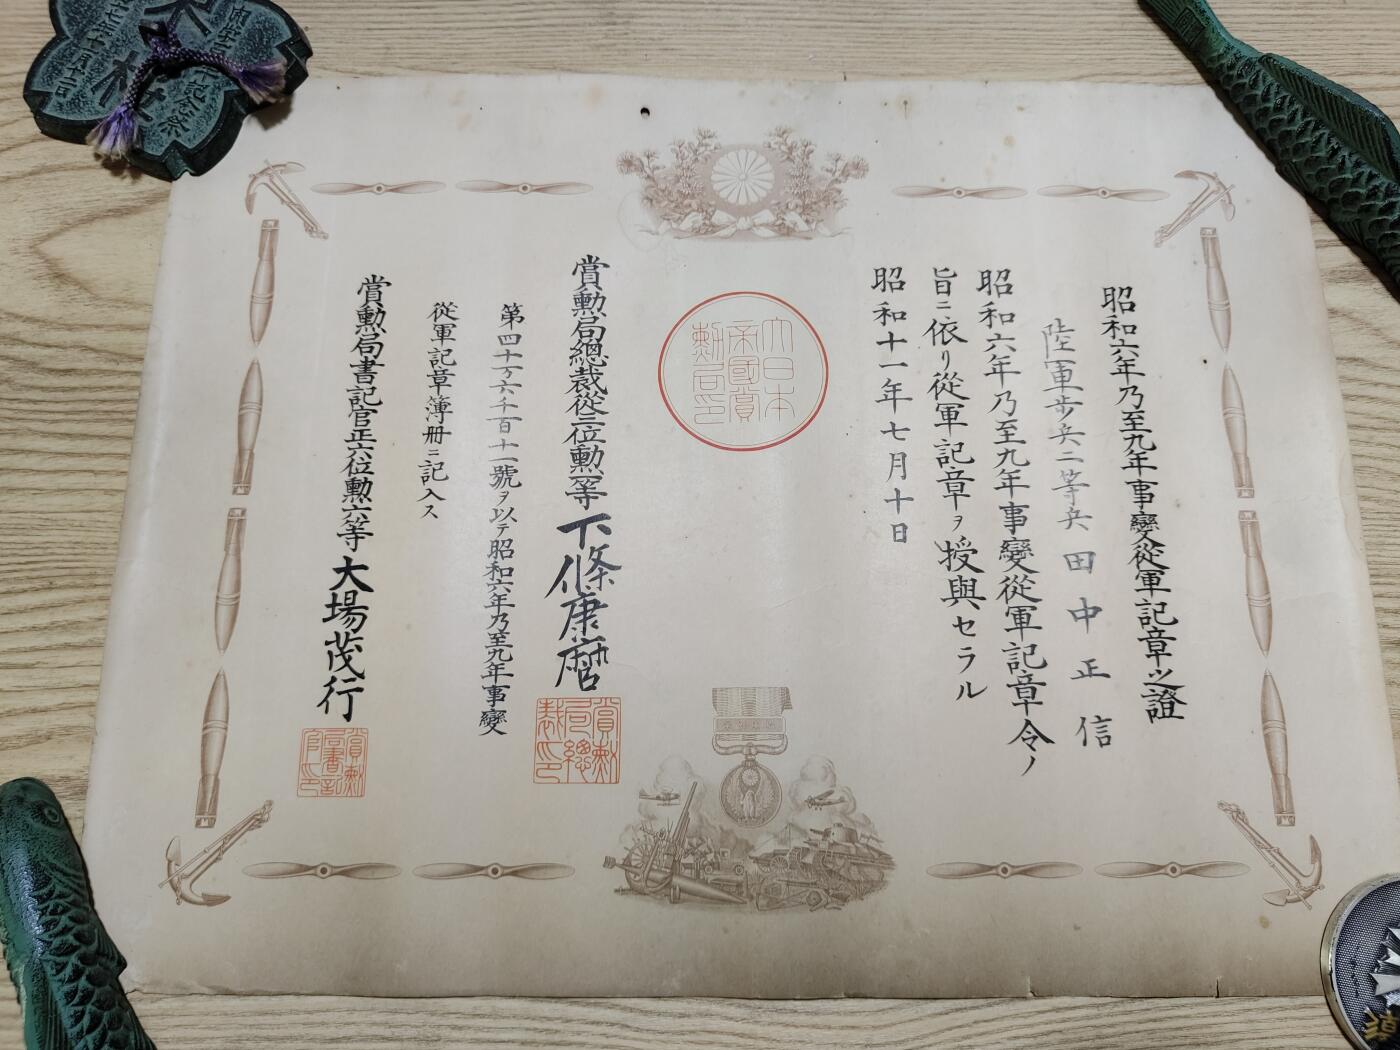 昭和六年乃至九年事變從軍記章之證
陸軍步兵二等兵 田中正信
昭和六年乃至九年事變從軍記章令ノ
旨ニ依リ從軍記章ヲ授與セラル
昭和十一年七月十日
大日本
帝國賞
勲局印
賞勲局總裁從三位勲一等 下條康麿
賞勲
局總
裁印
第四十万六千百十一號ヲ以テ昭和六年乃至九年事變
從軍記章簿冊ニ記入ス
賞勲局書記官正六位勲六等 大場茂行
賞勲
局書記
官印